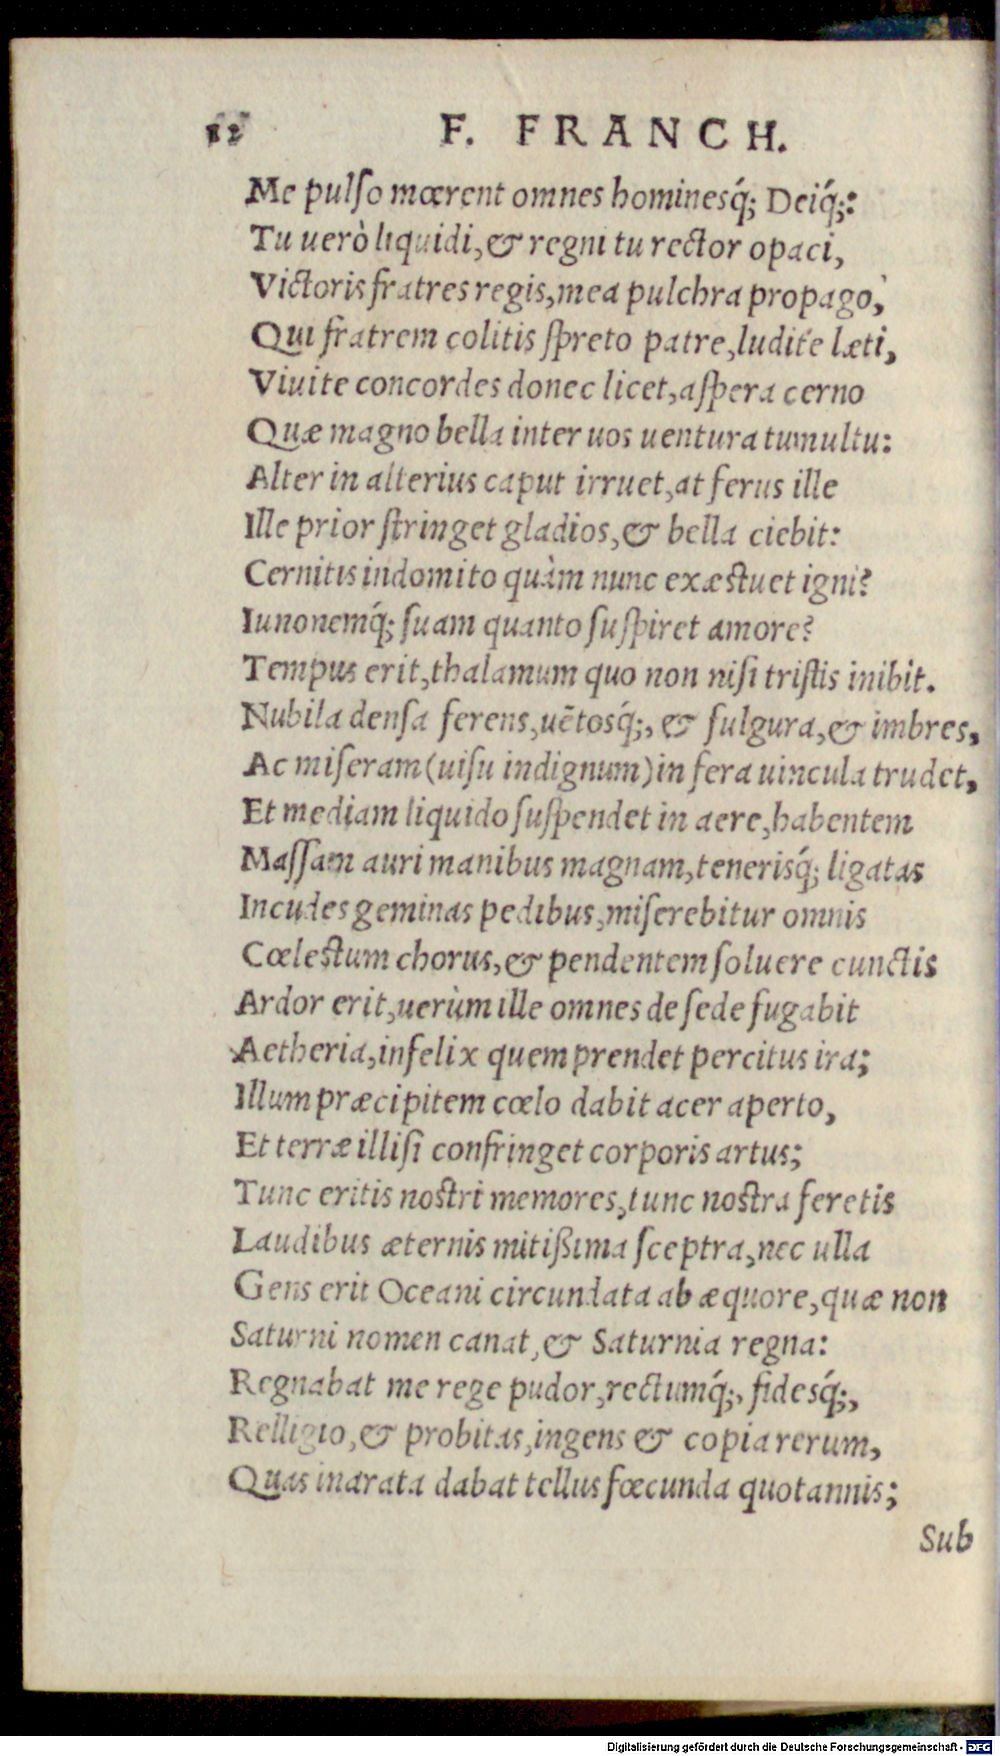 82 F. FRANCH.
Me pulſo mœrent omnes hominesq́; Deiq́;:
Tu uerò liquidi, & regni tu rector opaci,
Victoris fratres regis, mea pulchra propago,
Qui fratrem colitis ſpreto patre, ludite læti,
Viuite concordes donec licet, aſpera cerno
Quæ magno bella inter uos uentura tumultu:
Alter in alterius caput irruet, at ferus ille
Ille prior ſtringet gladios, & bella ciebit:
Cernitis indomito quàm nunc exæſtuet igni?
Iunonemq́; ſuam quanto ſuſpiret amore?
Tempus erit, thalamum quo non niſi triſtis inibit.
Nubila denſa ferens, uẽtosq́;, & fulgura, & imbres,
Ac miſeram (uiſu indignum) in fera uincula trudet,
Et mediam liquido ſuſpendet in aere, habentem
Maſſam auri manibus magnam, tenerisq́; ligatas
Incudes geminas pedibus, miſerebitur omnis
Cœleſtum chorus, & pendentem ſoluere cunctis
Ardor erit, uerùm ille omnes de ſede fugabit
Aetheria, infelix quem prendet percitus ira;
Illum præcipitem cœlo dabit acer aperto,
Et terræ illiſi confringet corporis artus;
Tunc eritis noſtri memores, tunc noſtra feretis
Laudibus æternis mitißima ſceptra, nec ulla
Gens erit Oceani circundata ab æquore, quæ non
Saturni nomen canat, & Saturnia regna:
Regnabat me rege pudor, rectumq́;, fidesq́;,
Relligio, & probitas, ingens & copia rerum,
Quas inarata dabat tellus fœcunda quotannis;
Sub
Digitalisierung gefördert durch die Deutsche Forschungsgemeinschaft - DFG